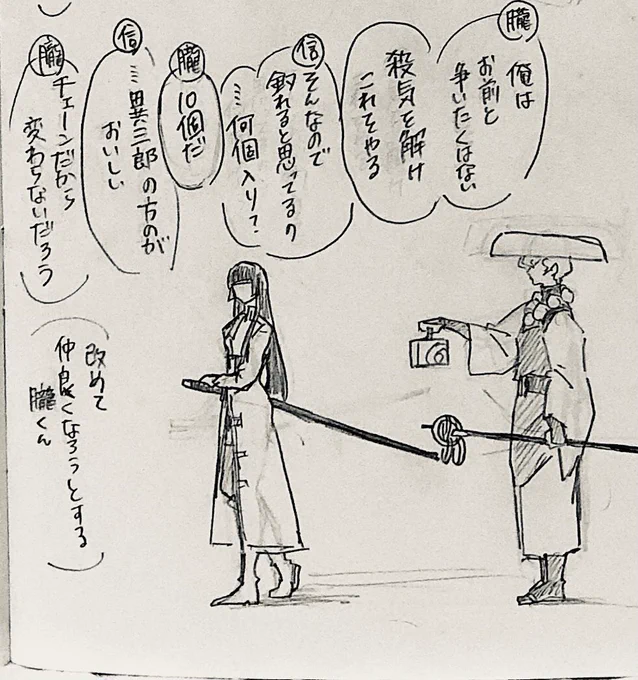 朧
俺は
お前と
争いたくはない
殺気を解け
これをやる
信
そんなので
釣れると思ってるの
…何個入り？
朧
10個だ
信
…異三郎の方のが
おいしい
朧
チェーンだから
変わらないだろう
改めて
仲良くなろうとする
朧くん